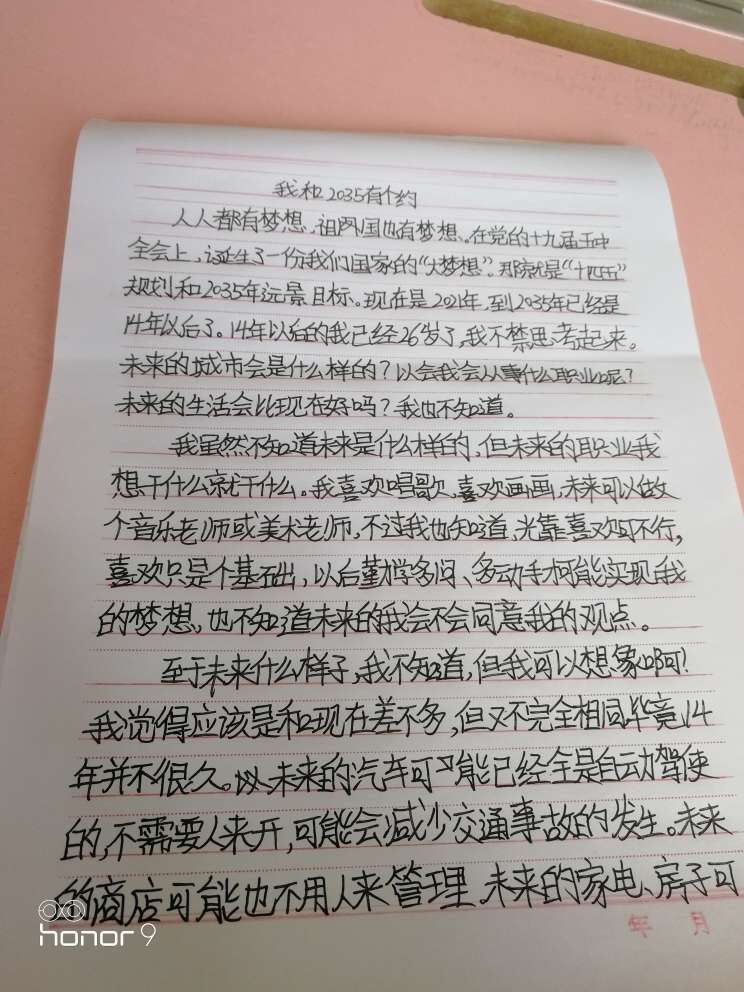 我和2035有个约
人人都有梦想,祖国也有梦想。在党的十九届五中
全会上,诞生了一份我们国家的“大梦想”。那就是“十四五”
规划和2035年远景目标。现在是2021年,到2035年已经是
14年以后了。14年以后的我已经26岁了,我不禁思考起来。
未来的城市会是什么样的?以会我会从事什么职业呢?
未来的生活会比现在好吗?我也不知道。
我虽然不知道未来是什么样的,但未来的职业我
想干什么就干什么。我喜欢唱歌,喜欢画画,未来可以做
个音乐老师或美术老师,不过我也知道,光靠喜欢可不行,
喜欢只是个基础,以后勤学多问、多动手才能实现我
的梦想,也不知道未来的我会不会同意我的观点。
至于未来什么样子,我不知道,但我可以想象啊!
我觉得应该是和现在差不多,但又不完全相同毕竟,14
年并不很久。未来的汽车可能已经全是自动驾驶
的,不需要人来开,可能会减少交通事故的发生。未来
的商店可能也不用人来管理,未来的家电、房子可
年 月
honor 9